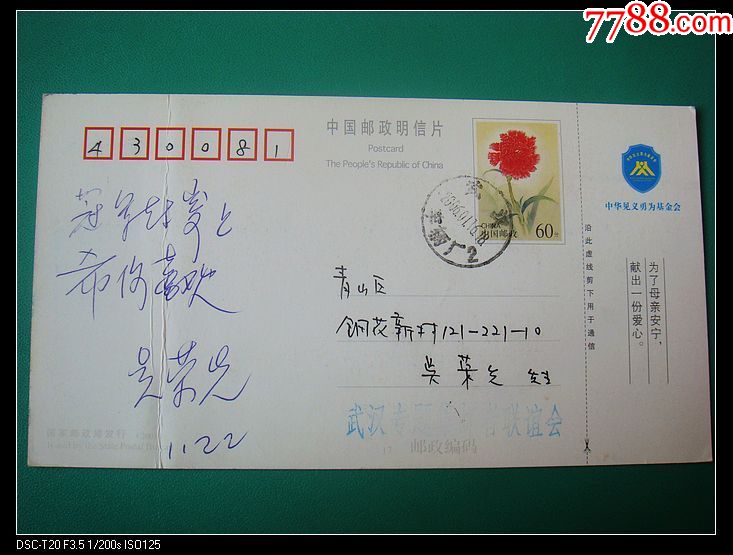 7788.com
中国邮政明信片
Postcard
The People's Republic of China
430081
希你喜欢
吴荣光
1.22
青山区
钢花新村121-221-10
吴荣光
CHINA
中国邮政
60分
武汉
2
中华见义勇为基金会
为了母亲安宁，
献出一份爱心。
沿此虚线剪下用于通信
武汉专题
联谊会
国家邮政局发行
Issued by the State Postal Bureau
邮政编码
DSC-T20 F3.5 1/200s ISO125